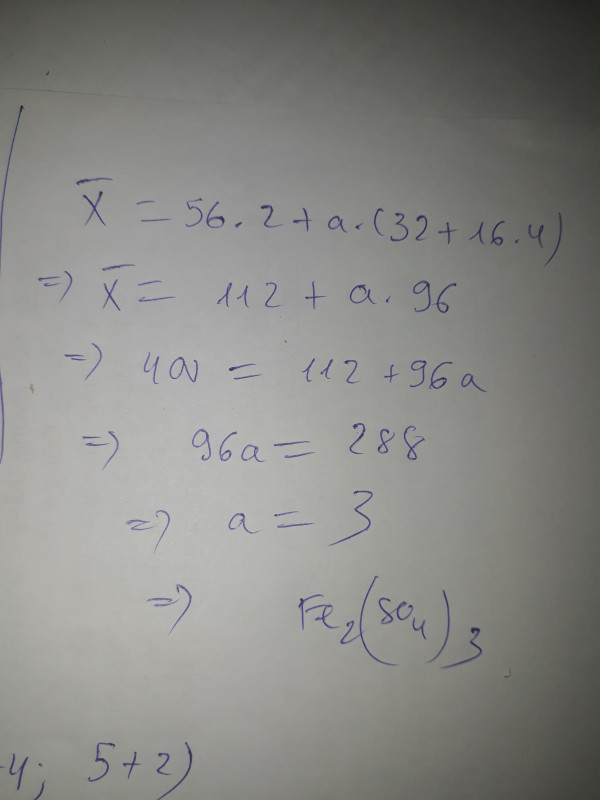 X̄ = 56.2 + a.(32 + 16.4)
=> X̄ = 112 + a. 96
=> 400 = 112 + 96a
=> 96a = 288
=> a = 3
=> Fe₂(SO₄)₃
4; 5+2)